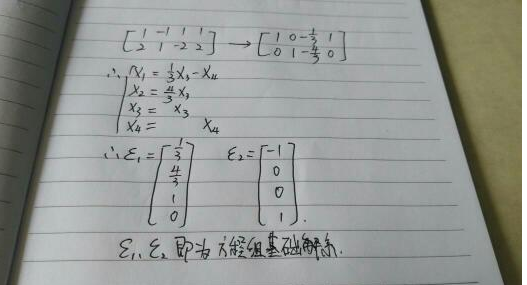 [1 -1 1 1 → [1 0 -1/3 1
2 1 -2 2] 0 1 -4/3 0]
∴ x₁ = 1/3 x₃ - x₄
x₂ = 4/3 x₃
x₃ = x₃
x₄ = x₄
∴ ε₁ = [1/3 4/3 1 0] ε₂ = [-1 0 0 1].
ε₁, ε₂ 即为方程组基础解系.